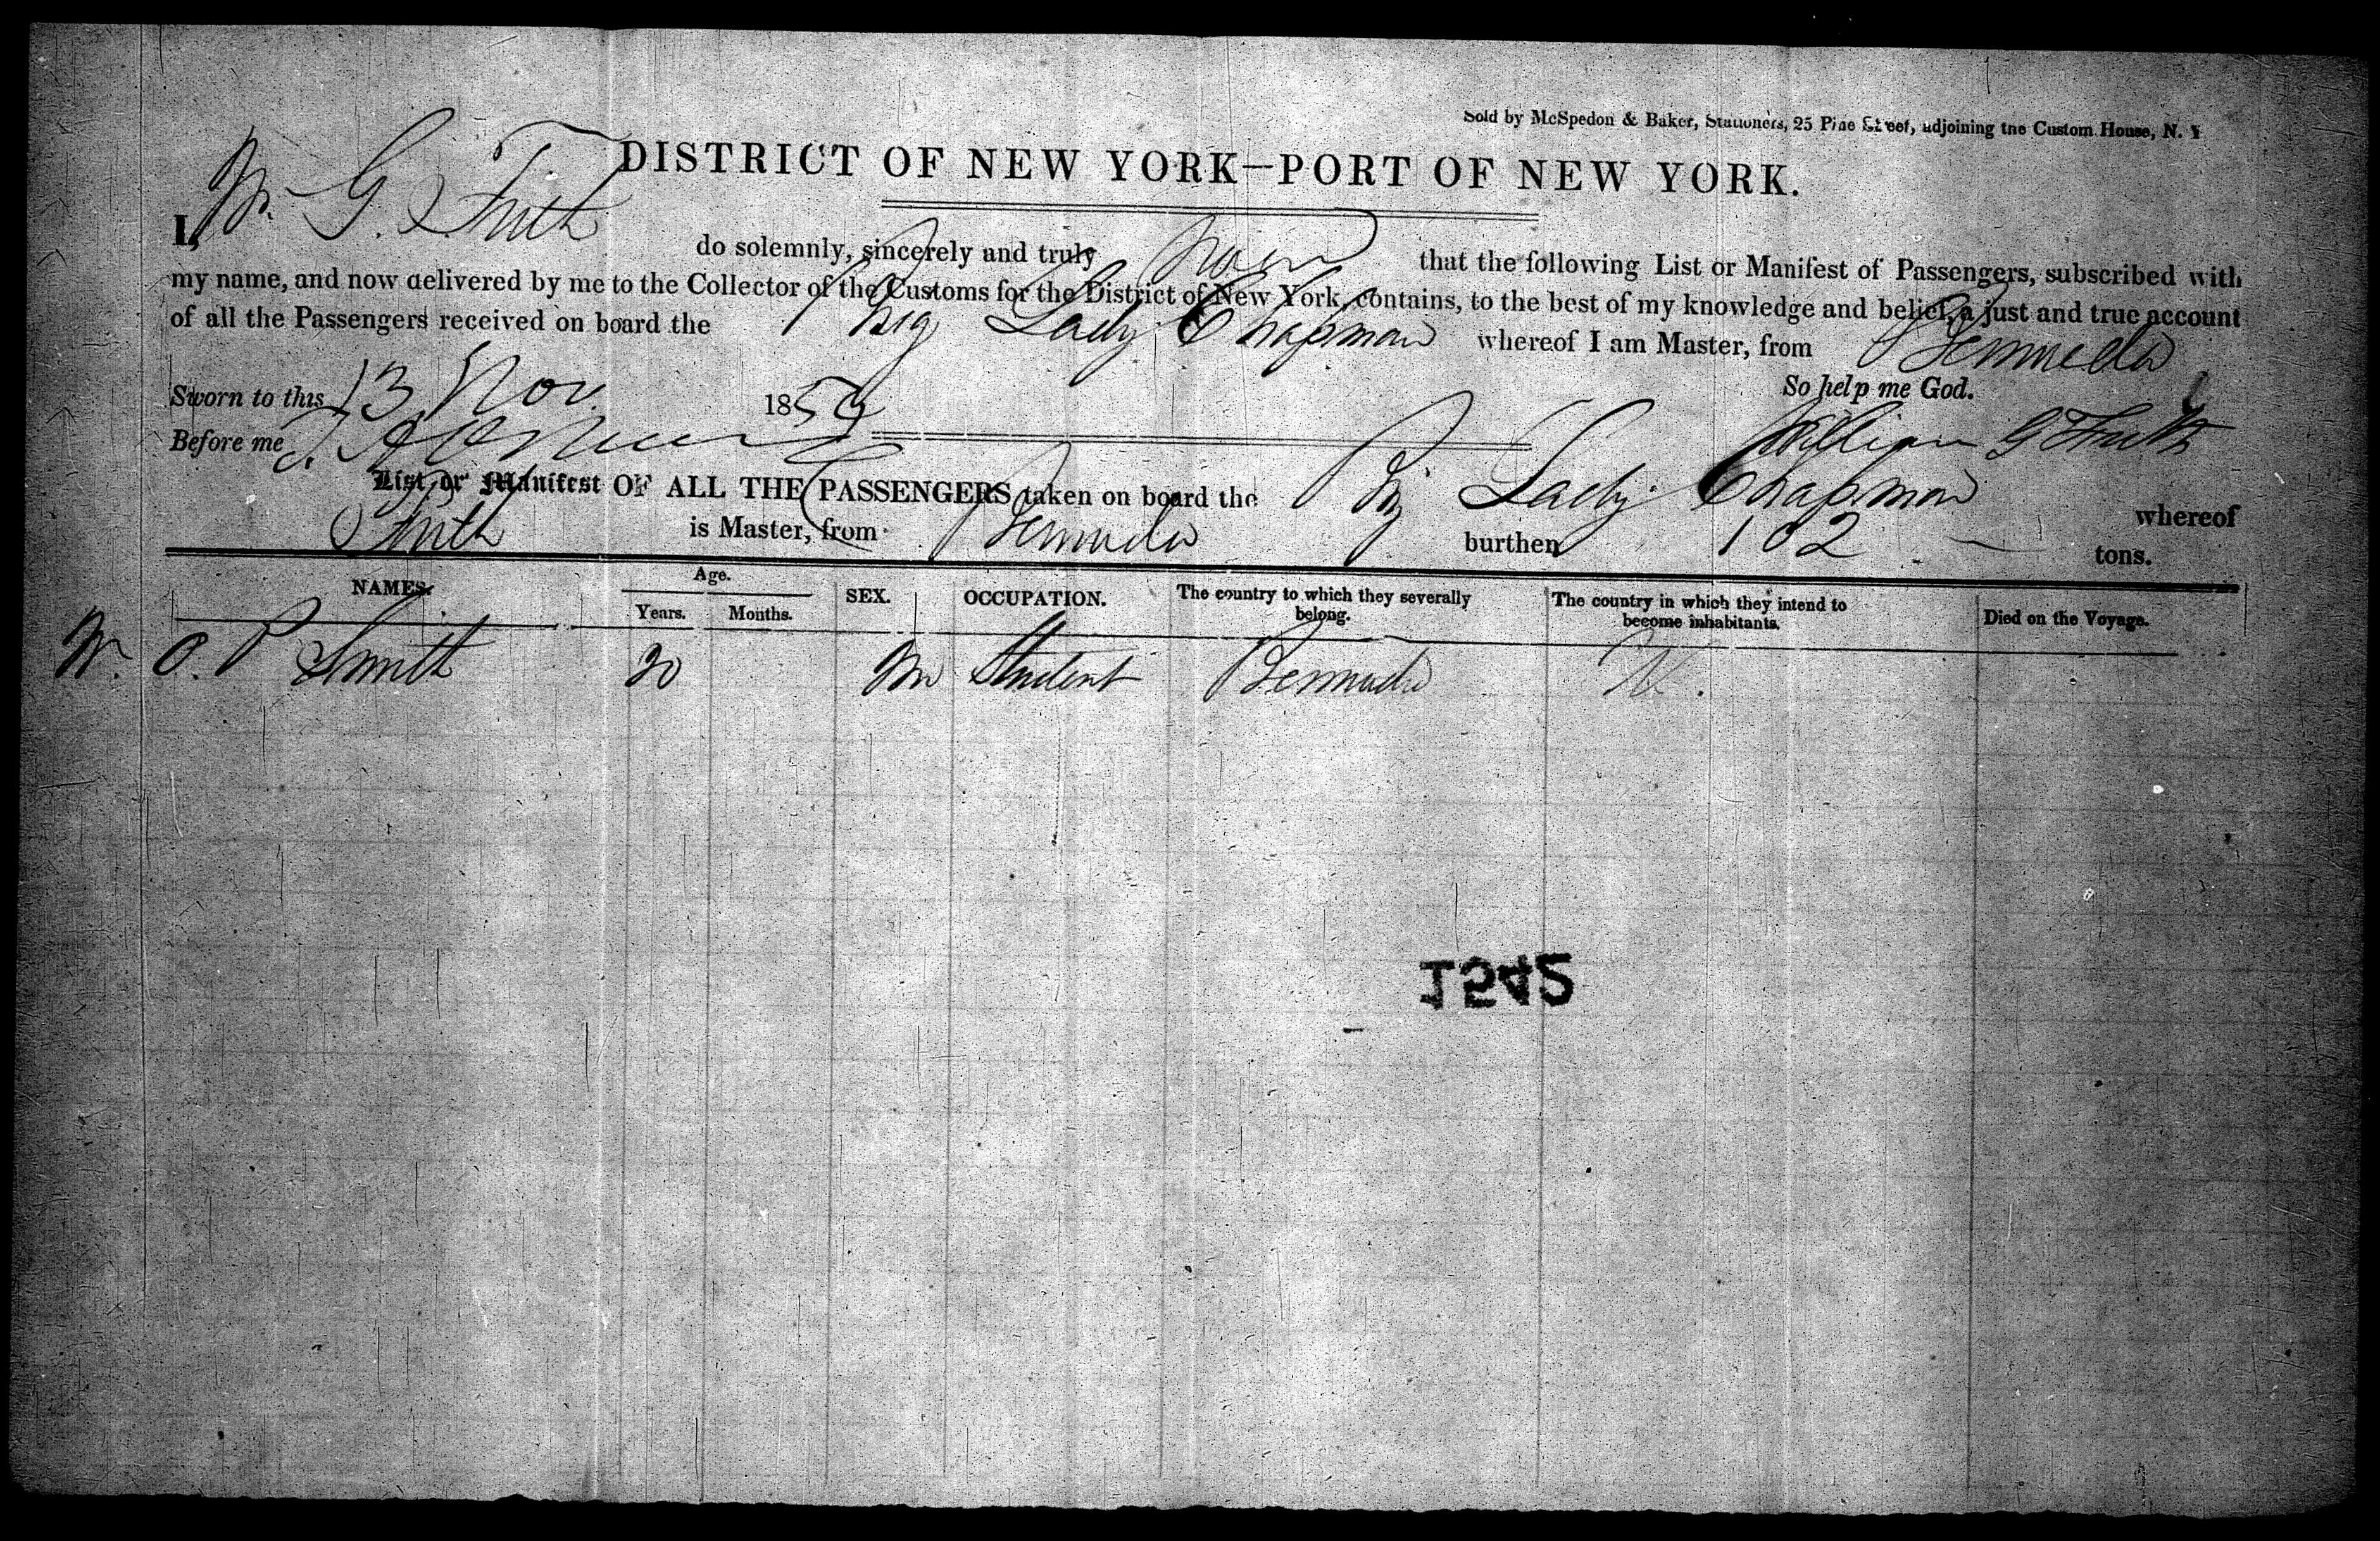 Sold by McSpedon & Baker, Stationers, 25 Pine Street, adjoining the Custom House, N. Y
DISTRICT OF NEW YORK—PORT OF NEW YORK.
I, W. G. Frith do solemnly, sincerely and truly swear that the following List or Manifest of Passengers, subscribed with
my name, and now delivered by me to the Collector of the Customs for the District of New York, contains, to the best of my knowledge and belief, a just and true account
of all the Passengers received on board the Brig Lady Chapman whereof I am Master, from Bermuda
Sworn to this 13 Nov 185 So help me God.
Before me William G Frith
List or Manifest OF ALL THE PASSENGERS taken on board the Brig Lady Chapman whereof
Frith is Master, from Bermuda burthen 102 tons.
NAMES. Age. SEX. OCCUPATION. The country to which they severally belong. The country in which they intend to become inhabitants. Died on the Voyage.
Years. Months.
W. O. P Smith 20 M Student Bermuda
1542